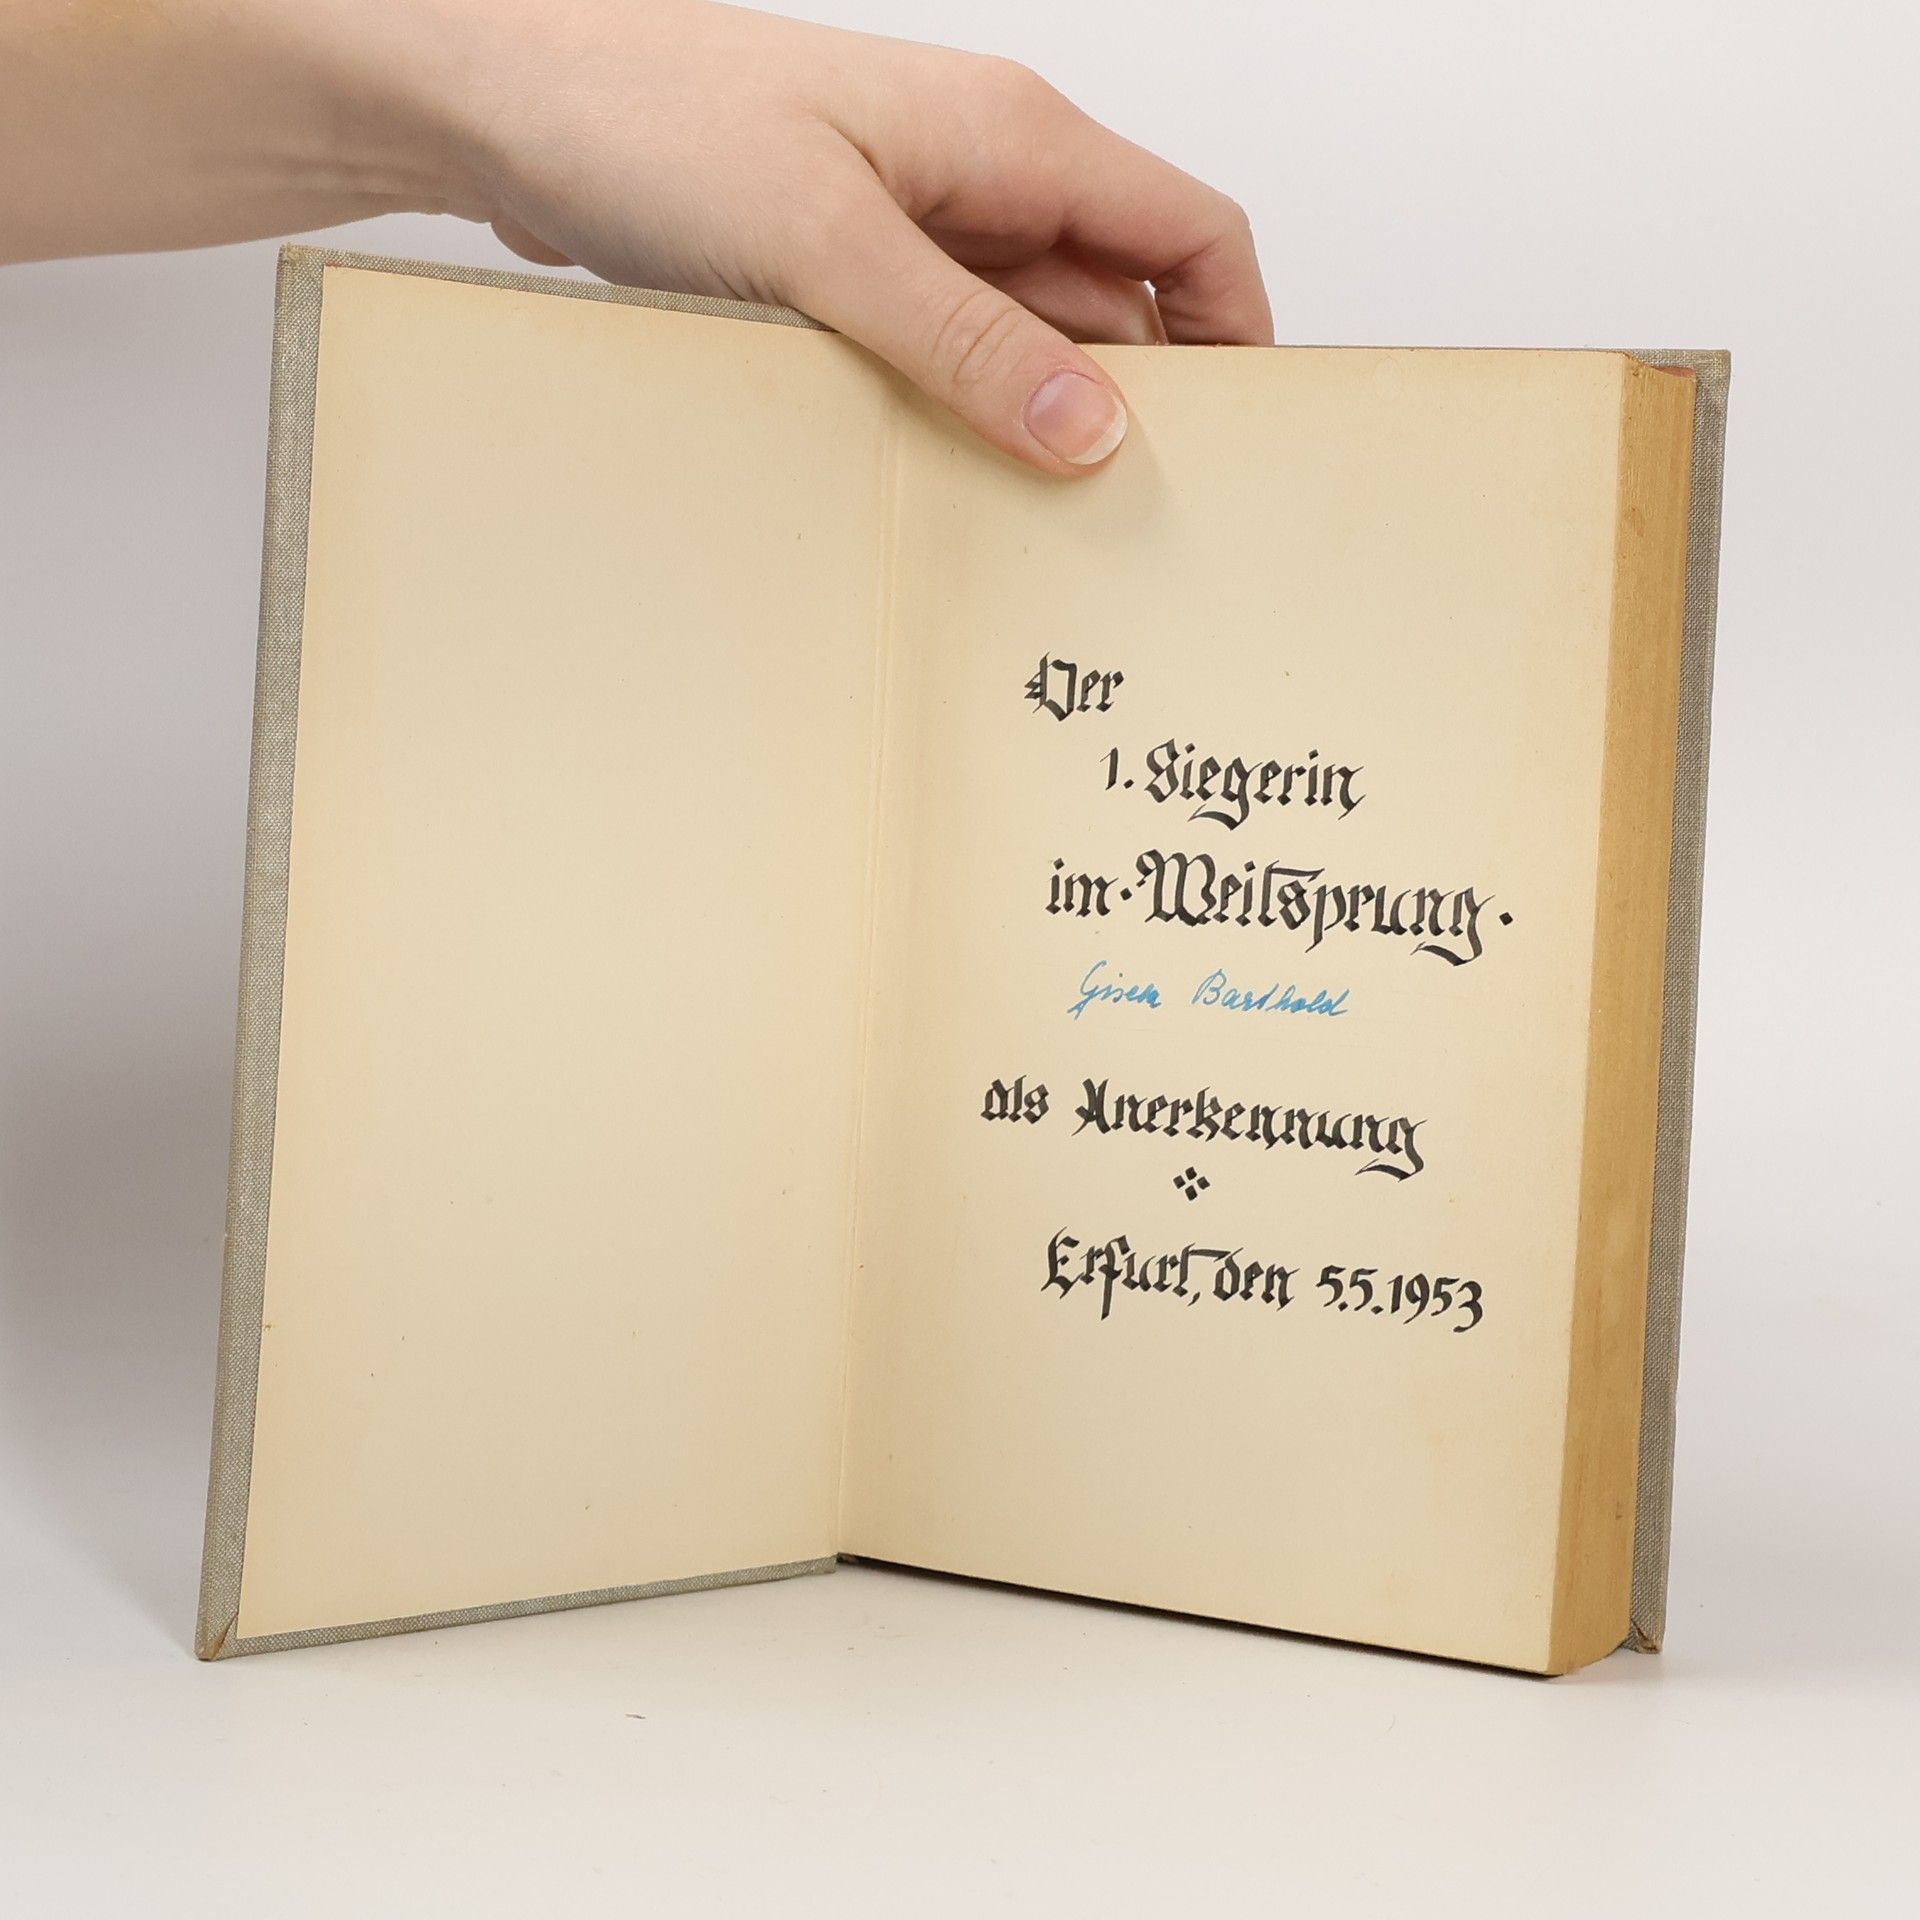 Der
1. Siegerin
im Weitsprung.
Gisela Barthold
als Anerkennung
Erfurt, den 5.5.1953